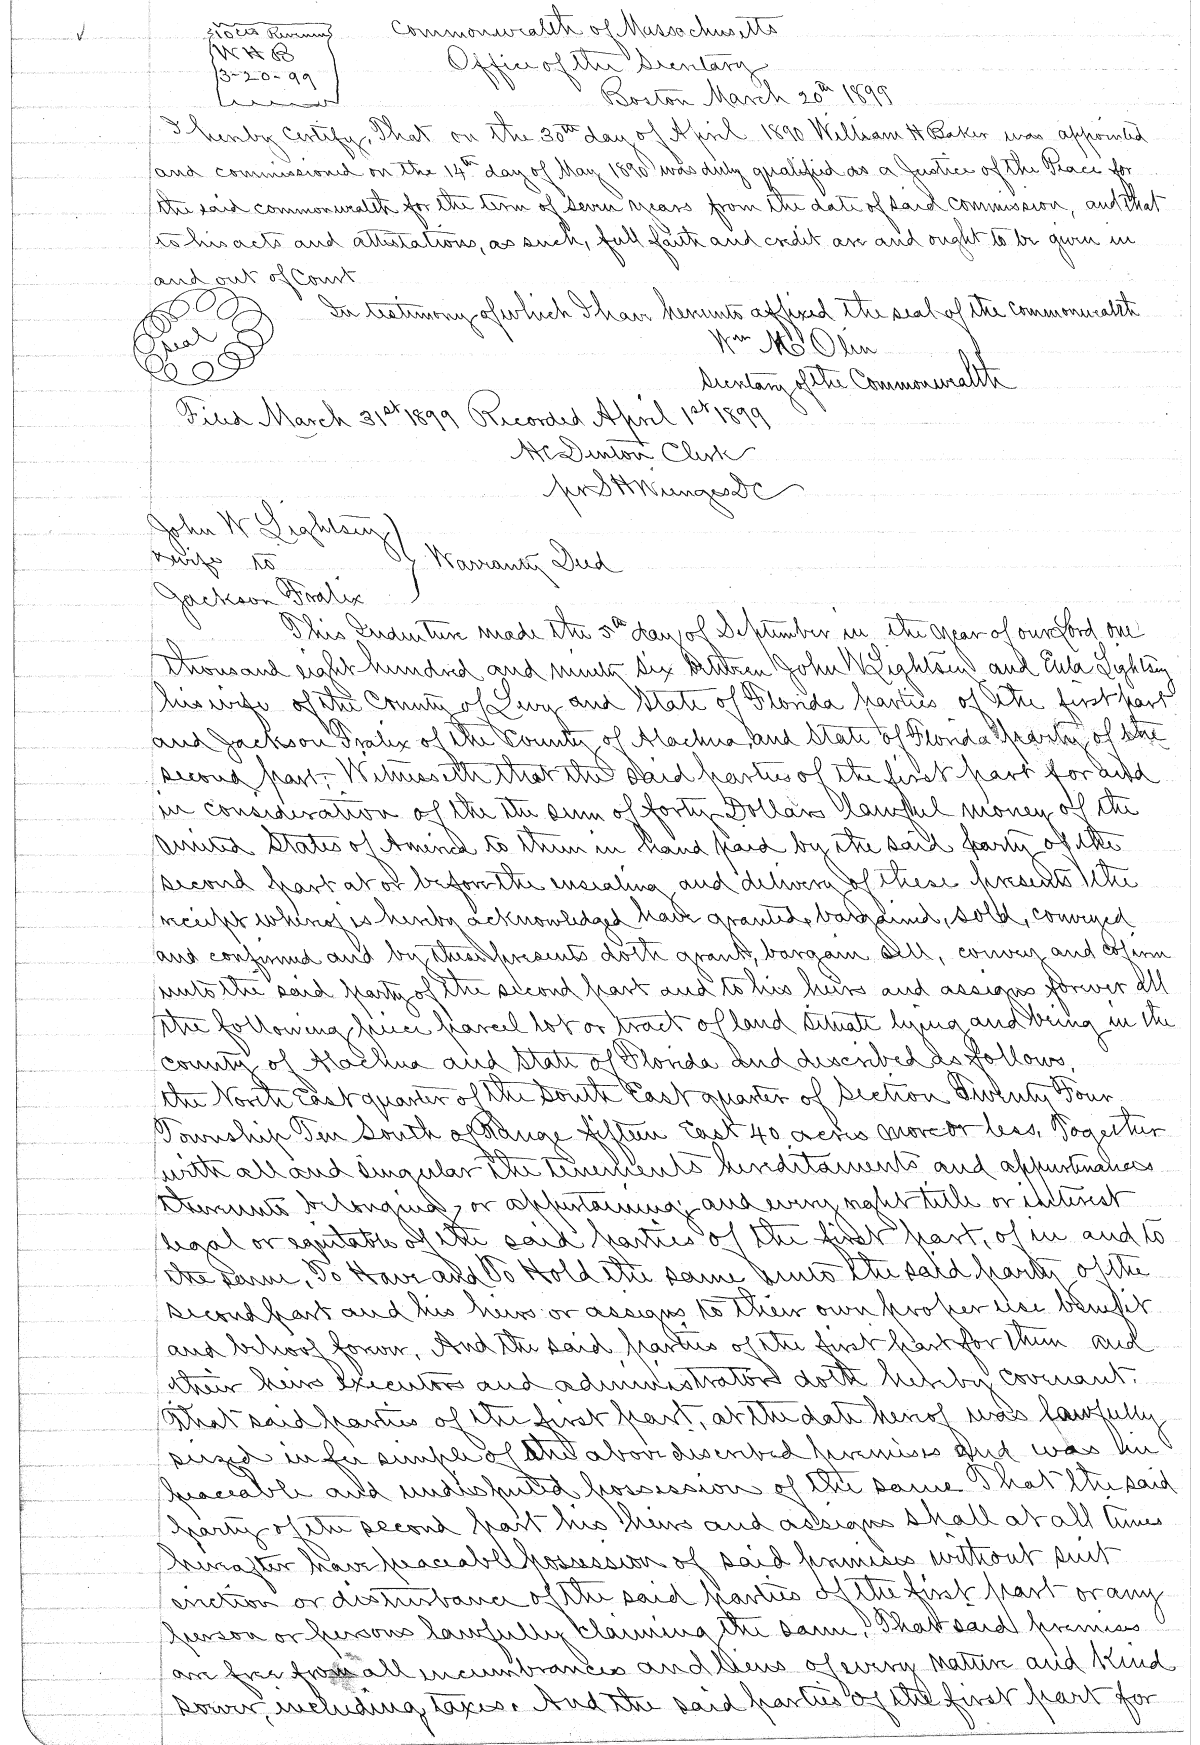 10 cts Revenue
W H B
3-20-99
Commonwealth of Massachusetts
Office of the Secretary
Boston March 20th 1899
I hereby Certify, That on the 30th day of April 1890 William H Baker was appointed
and commissioned on the 14th day of May 1890 was duly qualified as a Justice of the Peace for
the said commonwealth for the term of Seven years from the date of said commission, and that
to his acts and attestations, as such, full faith and credit are and ought to be given in
and out of Court
In testimony of which I have hereunto affixed the seal of the commonwealth
Seal
Wm M Olin
Secretary of the Commonwealth
Filed March 31st 1899 Recorded April 1st 1899
H C Denton Clerk
pr S H Wienges DC
John W Lightsey
& wife to
Warranty Deed
Jackson Fralix
This Indenture made the 5th day of September in the year of our Lord one
thousand eight hundred and ninety six between John W Lightsey and Eula Lightsey
his wife of the County of Levy and State of Florida parties of the first part
and Jackson Fralix of the County of Alachua and State of Florida party of the
second part, Witnesseth that the said parties of the first part for and
in consideration of the the sum of forty Dollars lawful money of the
United States of America to them in hand paid by the said party of the
second part at or before the ensealing and delivery of these presents the
receipt whereof is hereby acknowledged have granted, bargained, sold, conveyed
and confirmed and by these presents doth grant, bargain sell, convey and cofirm
unto the said party of the second part and to his heirs and assigns forever all
the following piece parcel lot or tract of land situate lying and being in the
county of Alachua and State of Florida and described as follows,
the North East quarter of the South East quarter of Section Twenty Four
Township Ten South of Range fifteen East 40 acres more or less, Together
with all and singular the tenements hereditaments and appurtenances
thereunto belonging, or appurtaining; and every right title or interest
legal or equitable of the said parties of the first part, of in and to
the same, To Have and To Hold the same unto the said party of the
second part and his heirs or assigns to their own proper use benefit
and behoof forever, And the said parties of the first part for them and
their heirs executors and administrators doth hereby covenant.
That said parties of the first part, at the date hereof was lawfully
seized in fee simple of the above described premises and was in
peaceable and undisputed possession of the same That the said
party of the second part his heirs and assigns shall at all times
hereafter have peaceable possession of said premises without suit
eviction or disturbance of the said parties of the first part or any
person or persons lawfully claiming the same. That said premises
are free from all incumbrances and liens of every nature and kind
sower, including taxes. And the said parties of the first part for